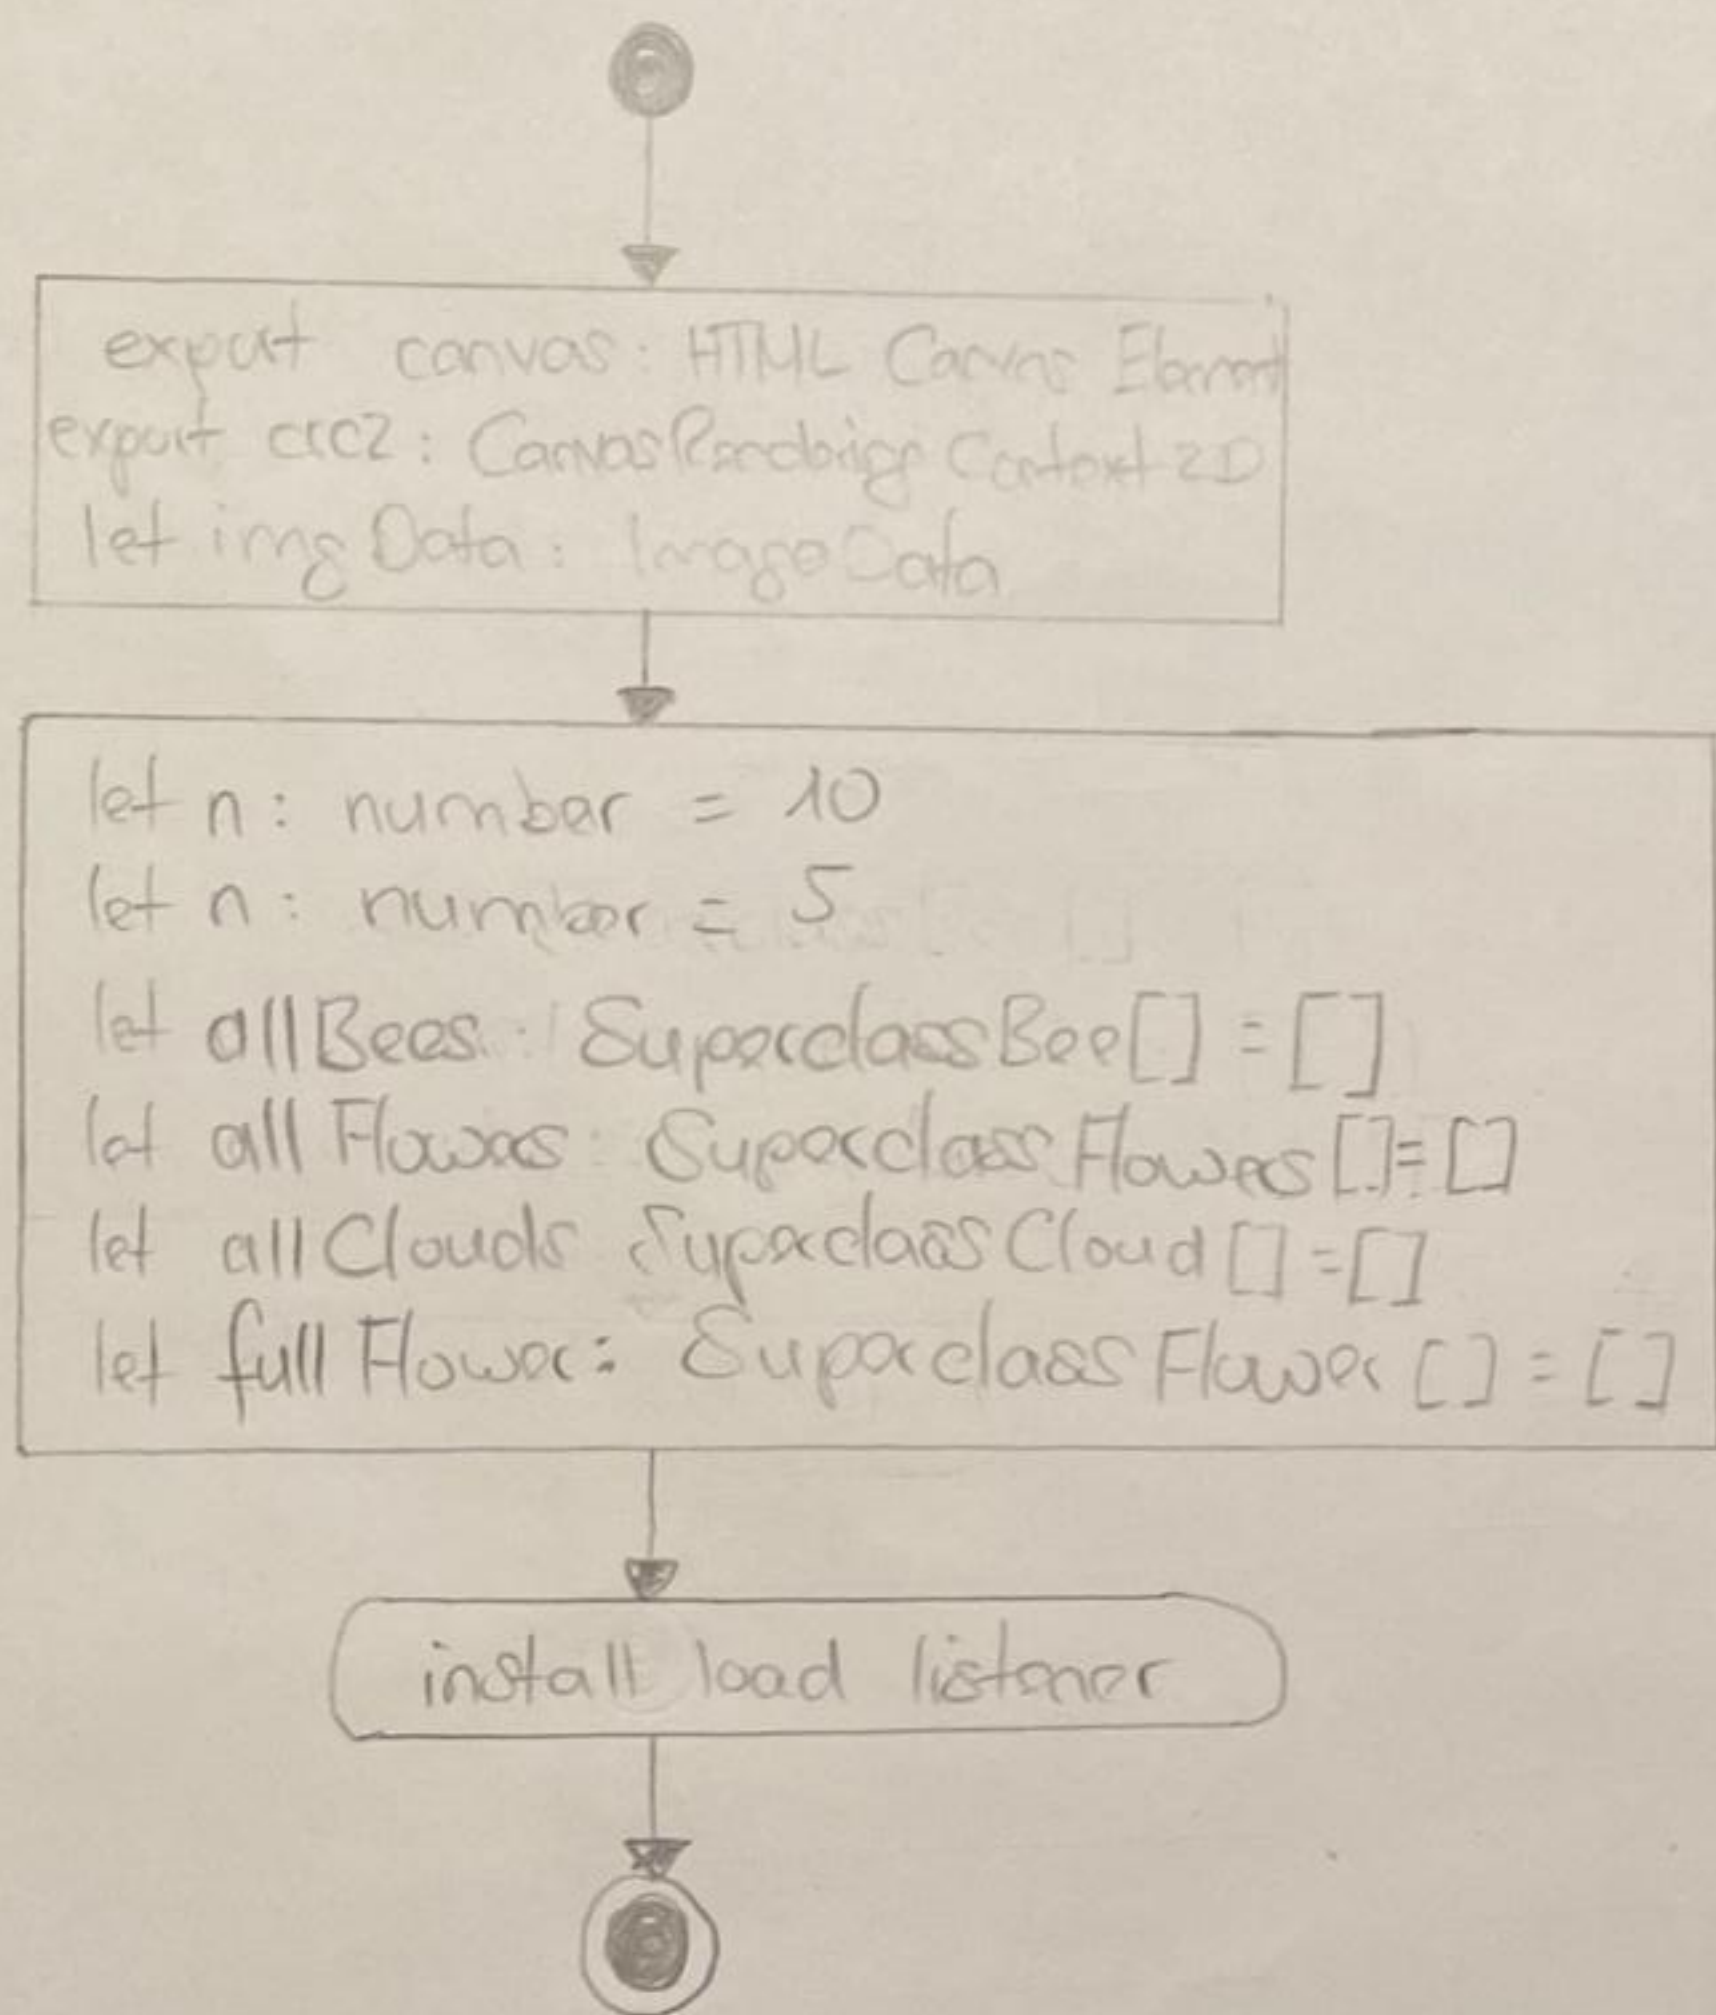 export canvas: HTML Canvas Element
export crc2: CanvasRenderings Context 2D
let img Data: ImageData
let n: number = 10
let n: number = 5
let allBees: SuperclassBee[] = []
let all Flowers: Superclass Flowers []= []
let all Clouds Superclass Cloud [] = []
let full Flower: Superclass Flower [] = []
install load listener